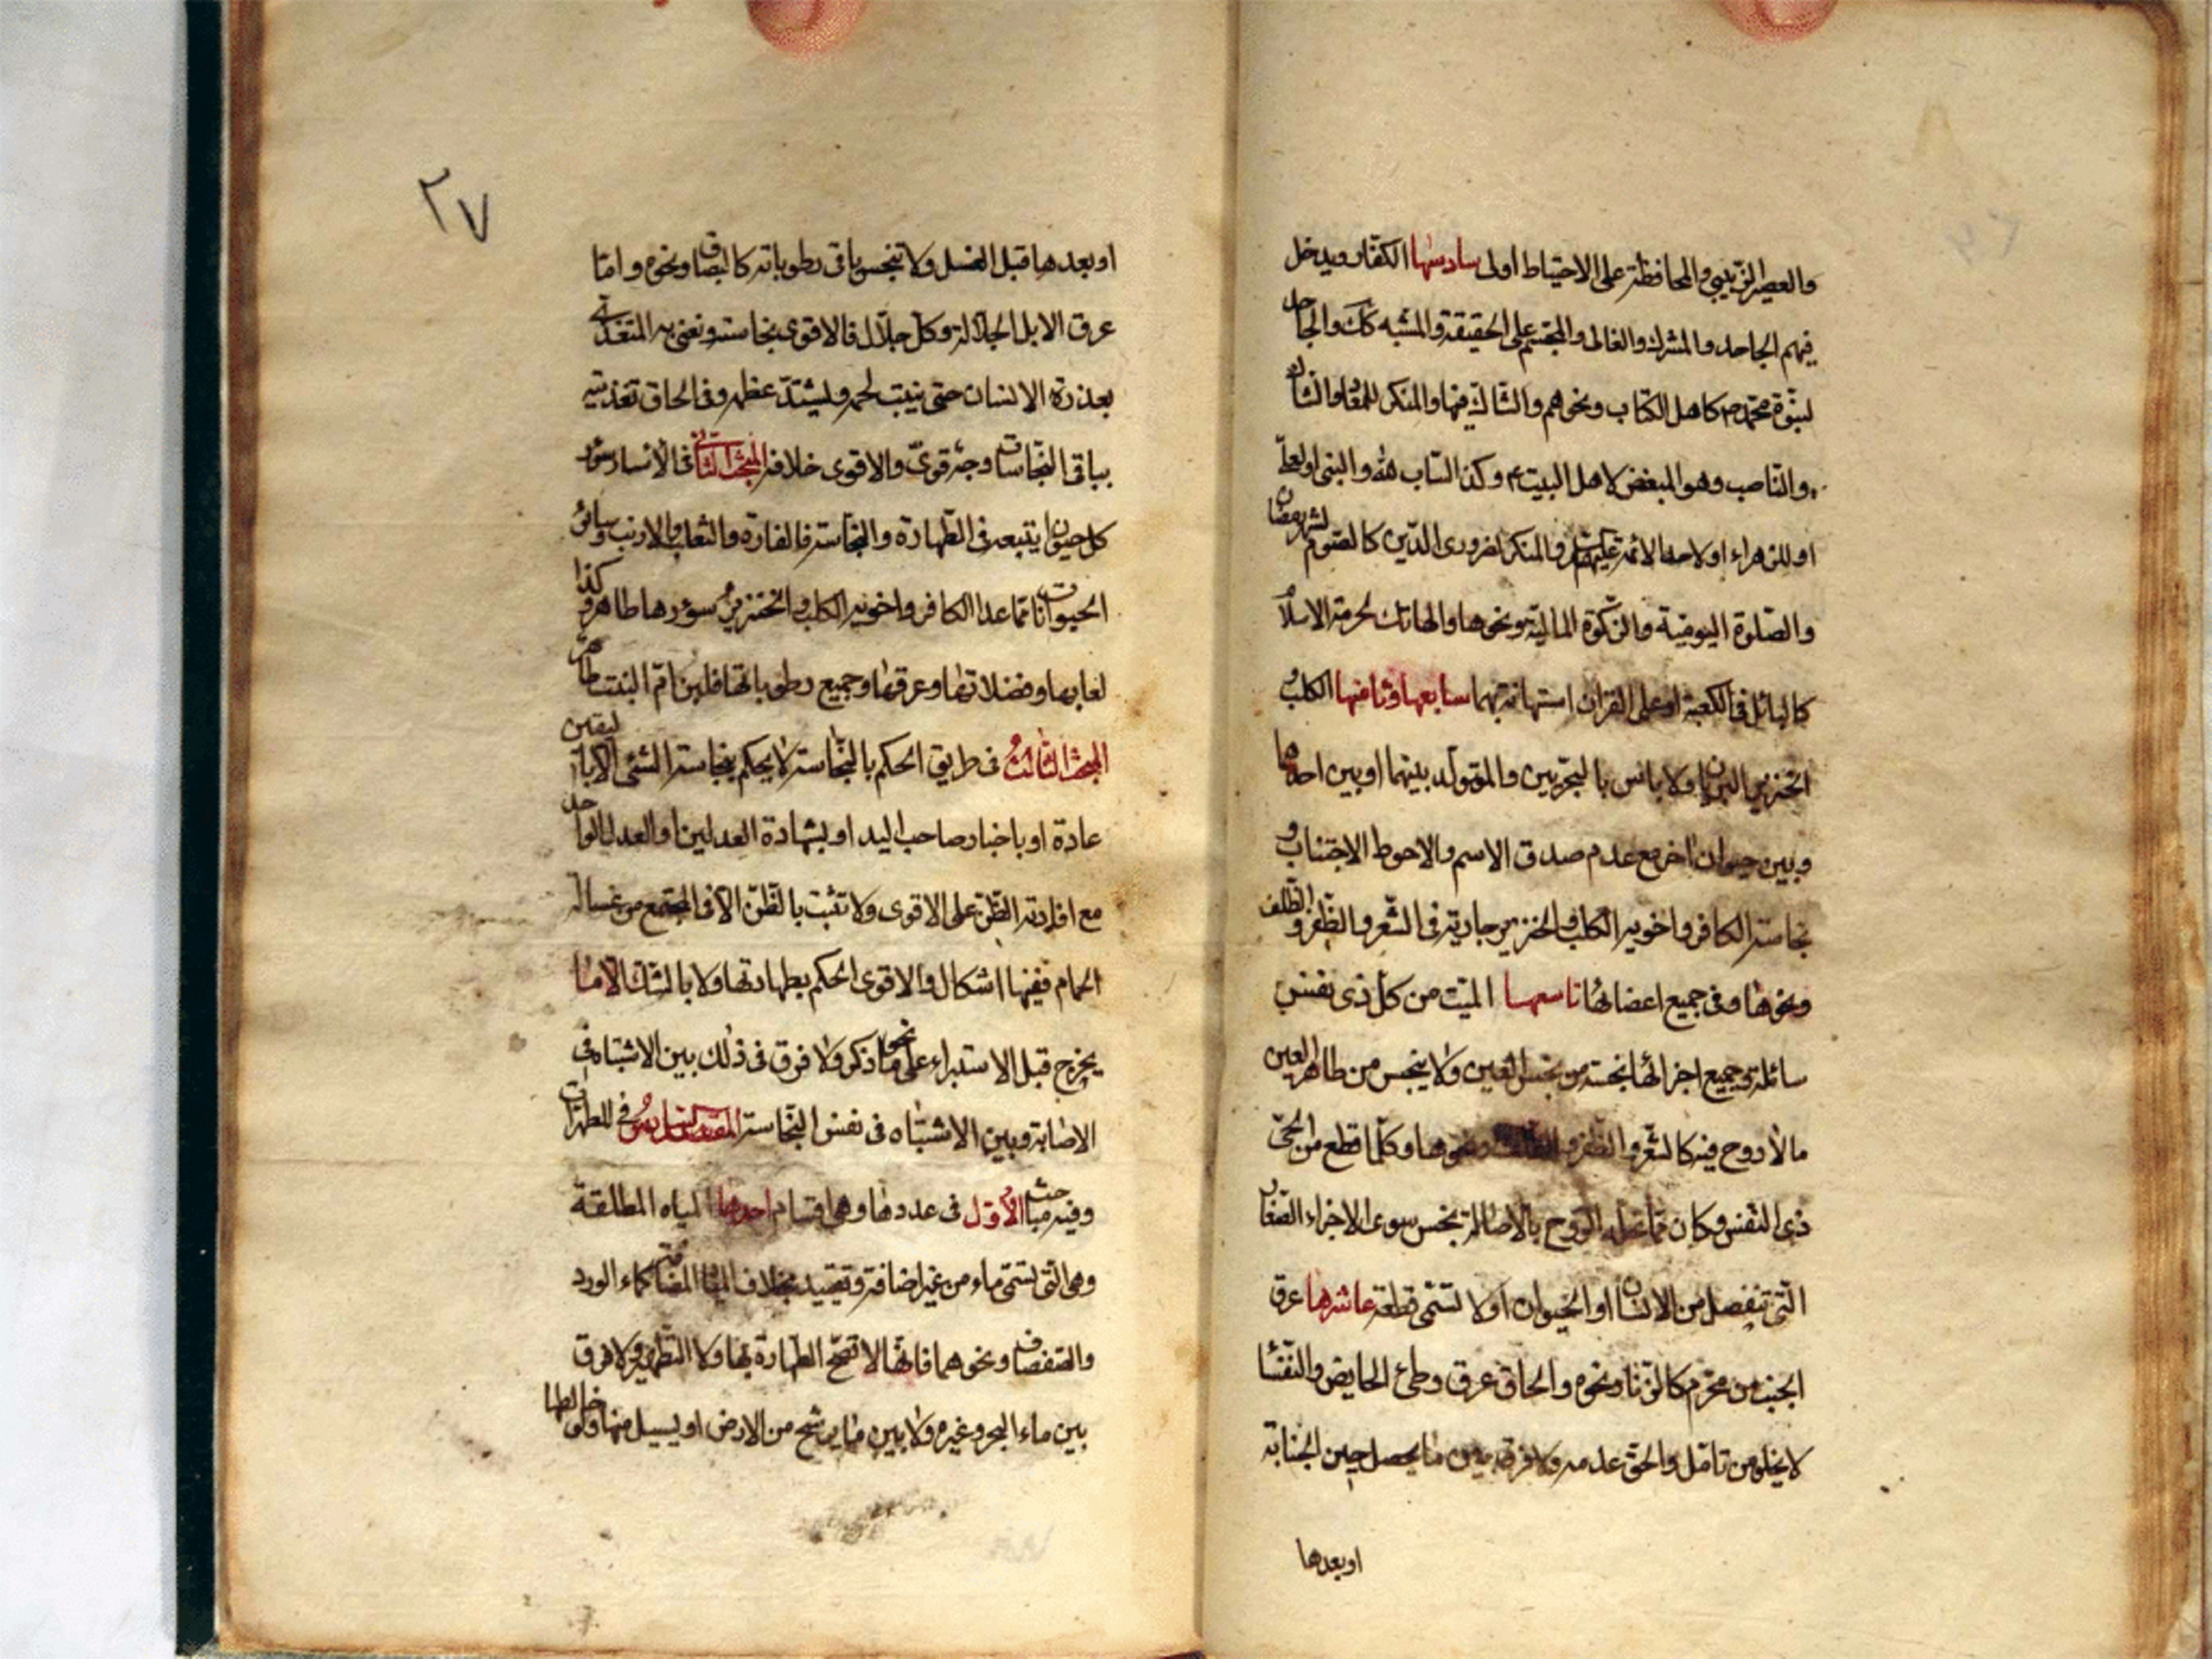 والعصير الزبيبي والمحافظة على الاحتياط اولى سادسها الكفار ويدخل
فيهم الجاحد والمشرك والغالي والمجسم على الحقيقة والمشبه كك والجاحد
لنبوة محمد ص كاهل الكتاب ونحوهم والشاك فيها والمنكر للمعاد والشاك
والناصب وهو المبغض لاهل البيت ع وكذا الساب لله والنبي او لعلي
او للزهراء او لاحد الائمة عليهم والمنكر لضروري الدين كالصوم لشهر رمضان
والصلوة اليومية والزكوة المالية ونحوها والهاتك لحرمة الاسلام
كالبائل في الكعبة او على القران استهانة بهما سابعها وثامنها الكلب و
الخنزير البريان ولا باس بالبحريين والمتولد بينهما او بين احدهما
وبين حيوان اخر مع عدم صدق الاسم والاحوط الاجتناب و
نجاسة الكافر واخويه الكلب والخنزير جارية في الشعر والظفر والظلف
ونحوها وفي جميع اعضائها تاسعها الميت من كل ذي نفس
سائلة وجميع اجزائها نجسة من نجس العين ولا ينجس من طاهر العين
ما لا روح فيه كالشعر والظفر ونحوها وكلما قطع من الحي
ذي النفس وكان مما تحله الروح بالاصالة نجس سوى الاجزاء الصغار
التي تنفصل من الانسان او الحيوان او لا تسمى قطعة عاشرها عرق
الجنب من محرم كالزنا ونحوه والحاق عرق وطئ الحايض والنفسا
لا يخلو من تامل والحق عدمه ولا فرق بين ما يحصل حين الجنابة
او بعدها
٢٧
او بعدها قبل الغسل ولا تنجس باقي رطوباته كالبصاق ونحوه واما
عرق الابل الجلالة وكل جلال فالاقوى نجاسته ونعني به المتغذي
بعذرة الانسان حتى ينبت لحمه ويشتد عظمه وفي الحاق تغذيته
بباقي النجاسات وجه قوي والاقوى خلافه المبحث الثاني في الاسار سؤر
كل حيوان يتبعه في الطهارة والنجاسة فالفارة والثعلب والارنب وسائر
الحيوانات مما عدا الكافر واخويه الكلب والخنزير سؤرها طاهر وكذا
لعابها وفضلاتها وعرقها وجميع رطوباتها فلبن ام البنت طاهر
المبحث الثالث في طريق الحكم بالنجاسة لا يحكم بنجاسة الشئ الا باليقين
عادة او باخبار صاحب اليد او بشهادة العدلين او العدل الواحد
مع افادته الظن على الاقوى ولا تثبت بالظن الا في المجتمع من غسالة
الحمام ففيها اشكال والاقوى الحكم بطهارتها ولا بالشك الا ما
يخرج قبل الاستبراء على نحو ما ذكر ولا فرق في ذلك بين الاشتباه في
الاصابة وبين الاشتباه في نفس النجاسة المقصد السادس في المطهرات
وفيه مباحث الاول في عددها وهي اقسام احدها المياه المطلقة
وهي التي تسمى ماء من غير اضافة وتقييد بخلاف المياه المضافة كماء الورد
والصفصاف ونحوهما فانها لا تصح الطهارة بها ولا التطهير ولا فرق
بين ماء البحر وغيره ولا بين ما يرشح من الارض او يسيل منها ولو خالطها